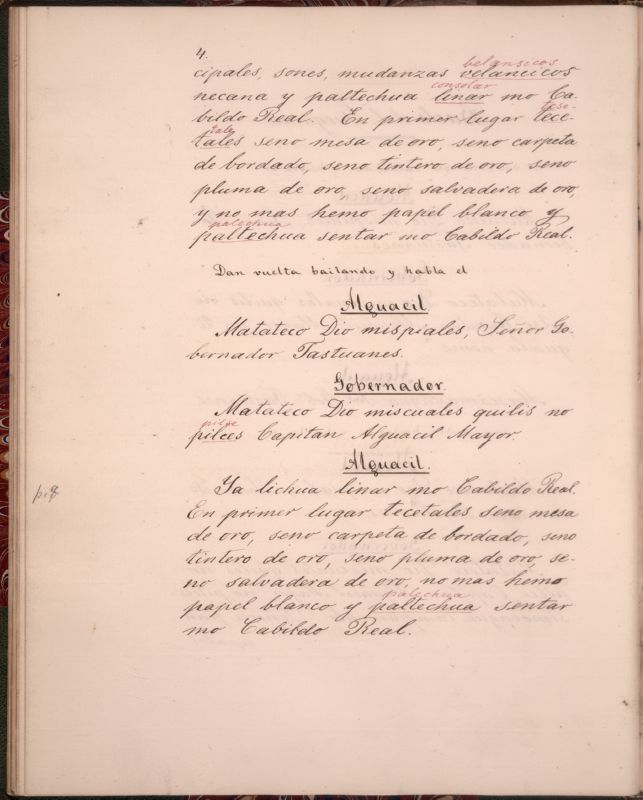 4.
belansicos
cipales, sones, mudanzas velancicos
consolar
necana y paltechua linar mo Ca-
tese-
bildo Real. En primer lugar tece-
tales
tales seno mesa de oro, seno carpeta
de bordado, seno tintero de oro, seno
pluma de oro, seno salvadera de oro,
y no mas hemo papel blanco y
palechua
paltechua sentar mo Cabildo Real.
Dan vuelta bailando y habla el
Alguacil
Matateco Dio mispiales, Señor Go-
bernador Tastuanes.
Gobernador.
Matateco Dio miscuales quilis no
pilse
pilces Capitan Alguacil Mayor.
Alguacil.
Ya lichua linar mo Cabildo Real.
En primer lugar tecetales seno mesa
de oro, seno carpeta de bordado, seno
tintero de oro, seno pluma de oro, se-
no salvadera de oro, no mas hemo
palechua
papel blanco y paltechua sentar
mo Cabildo Real.